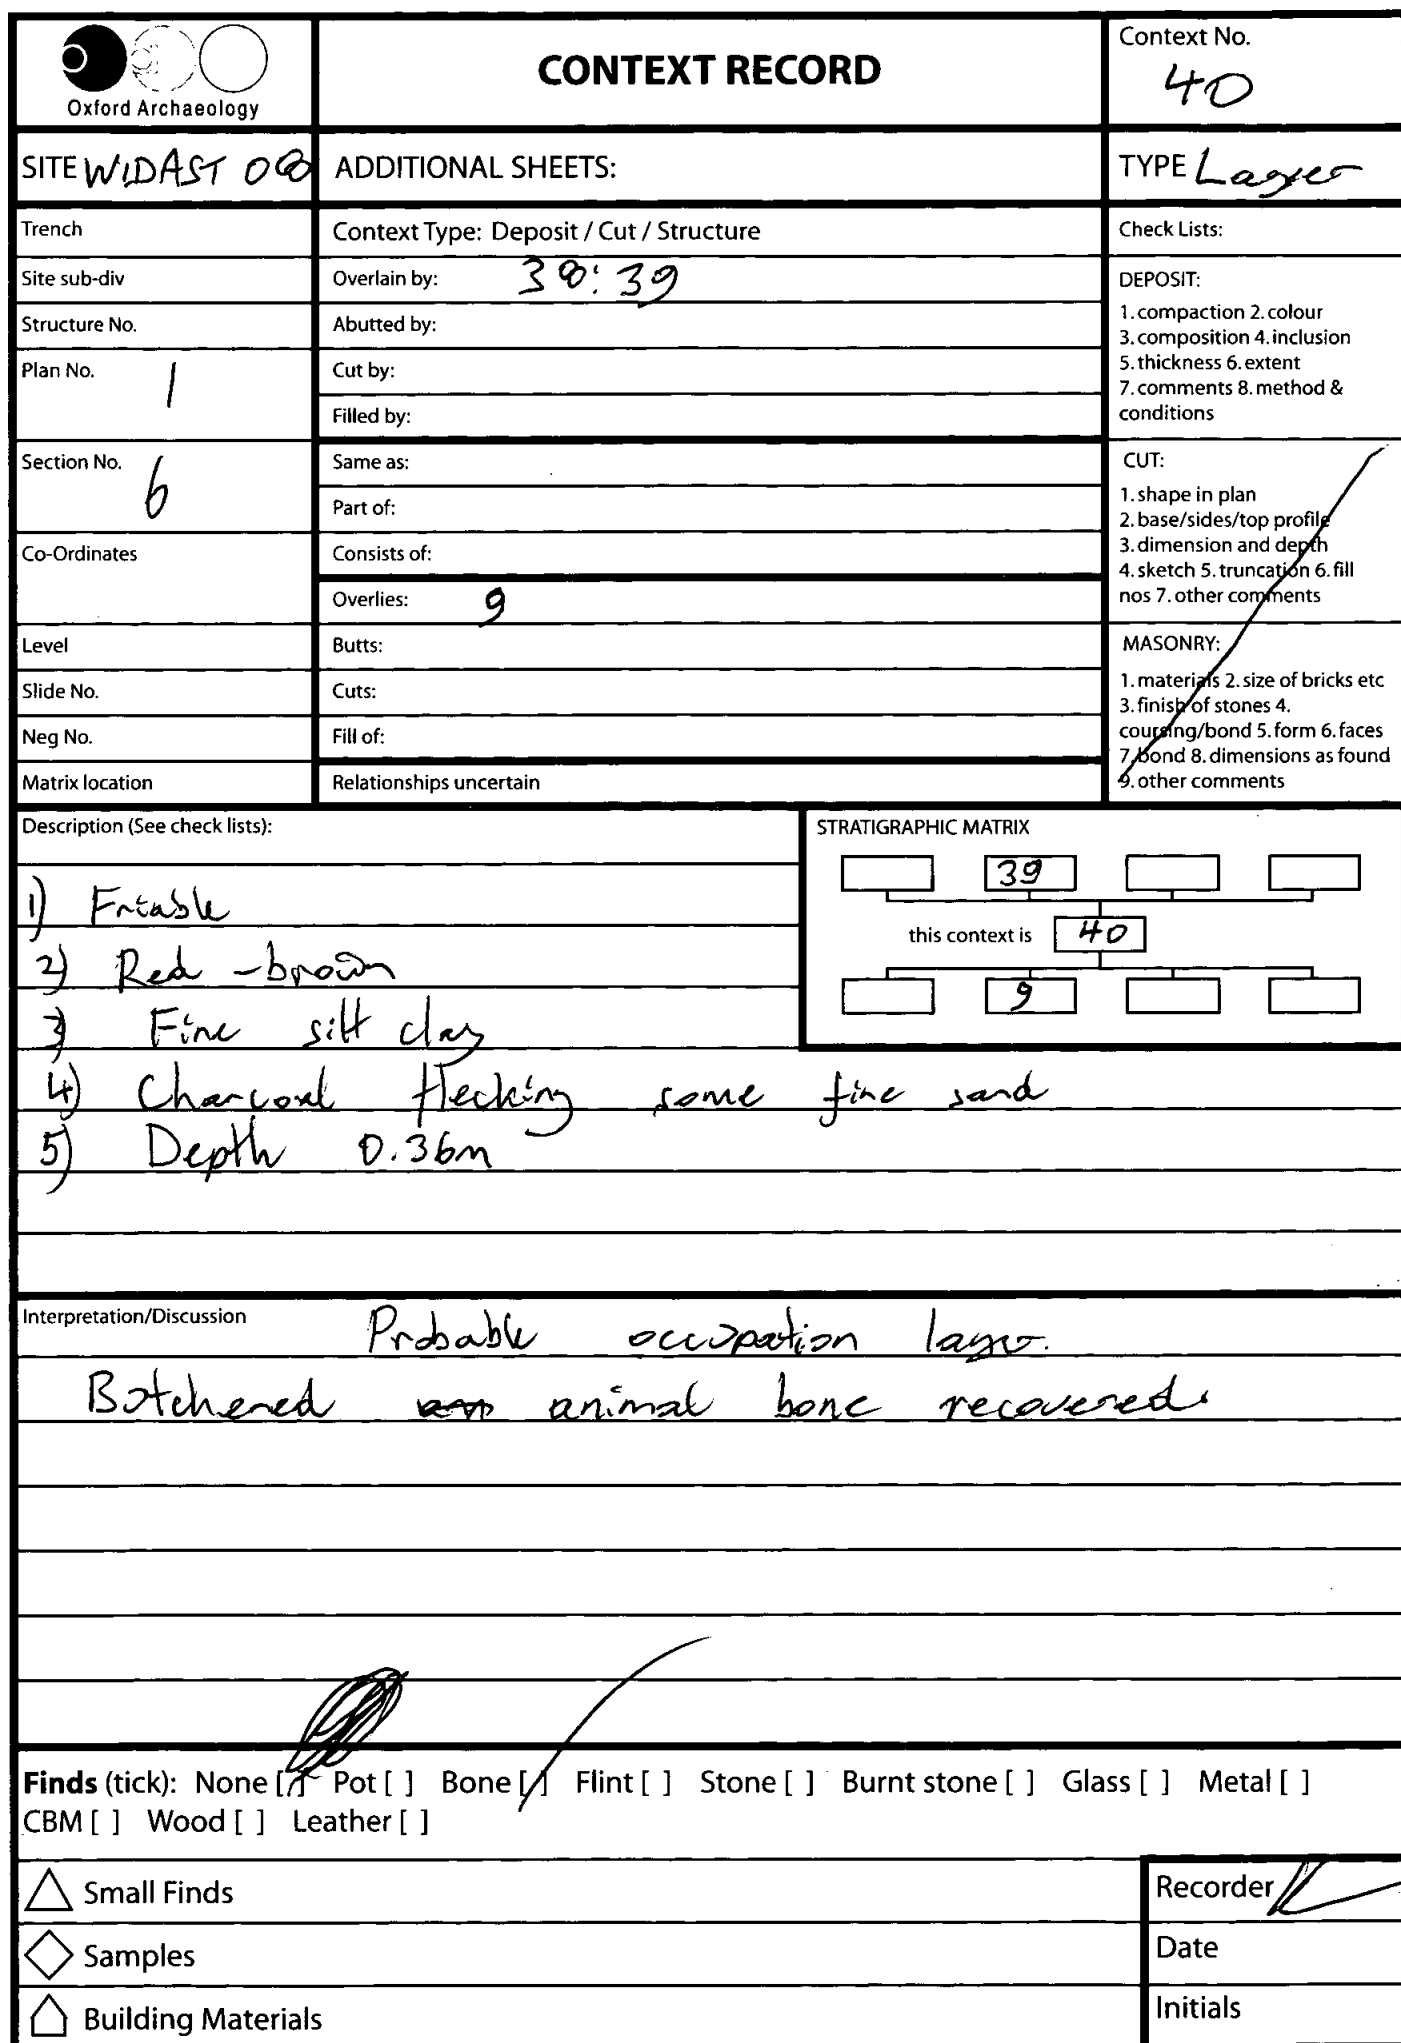 Oxford Archaeology
CONTEXT RECORD
Context No.
40
SITE WIDAST 08
ADDITIONAL SHEETS:
TYPE Layer
Trench
Context Type: Deposit / Cut / Structure
Check Lists:
Site sub-div
Overlain by: 38: 39
Structure No.
Abutted by:
Plan No. 1
Cut by:
Filled by:
Section No. 6
Same as:
Part of:
Co-Ordinates
Consists of:
Overlies: 9
Level
Butts:
Slide No.
Cuts:
Neg No.
Fill of:
Matrix location
Relationships uncertain
DEPOSIT:
1. compaction 2. colour
3. composition 4. inclusion
5. thickness 6. extent
7. comments 8. method &
conditions
CUT:
1. shape in plan
2. base/sides/top profile
3. dimension and depth
4. sketch 5. truncation 6. fill
nos 7. other comments
MASONRY:
1. materials 2. size of bricks etc
3. finish of stones 4.
coursing/bond 5. form 6. faces
7. bond 8. dimensions as found
9. other comments
Description (See check lists):
1) Friable
2) Red - brown
3) Fine silt clay
4) Charcoal flecking some fine sand
5) Depth 0.36m
STRATIGRAPHIC MATRIX
39
this context is 40
9
Interpretation/Discussion Probable occupation layer.
Botchered animal bone recovered.
Finds (tick): None [ ] Pot [ ] Bone [/] Flint [ ] Stone [ ] Burnt stone [ ] Glass [ ] Metal [ ]
CBM [ ] Wood [ ] Leather [ ]
Small Finds
Samples
Building Materials
Recorder
Date
Initials